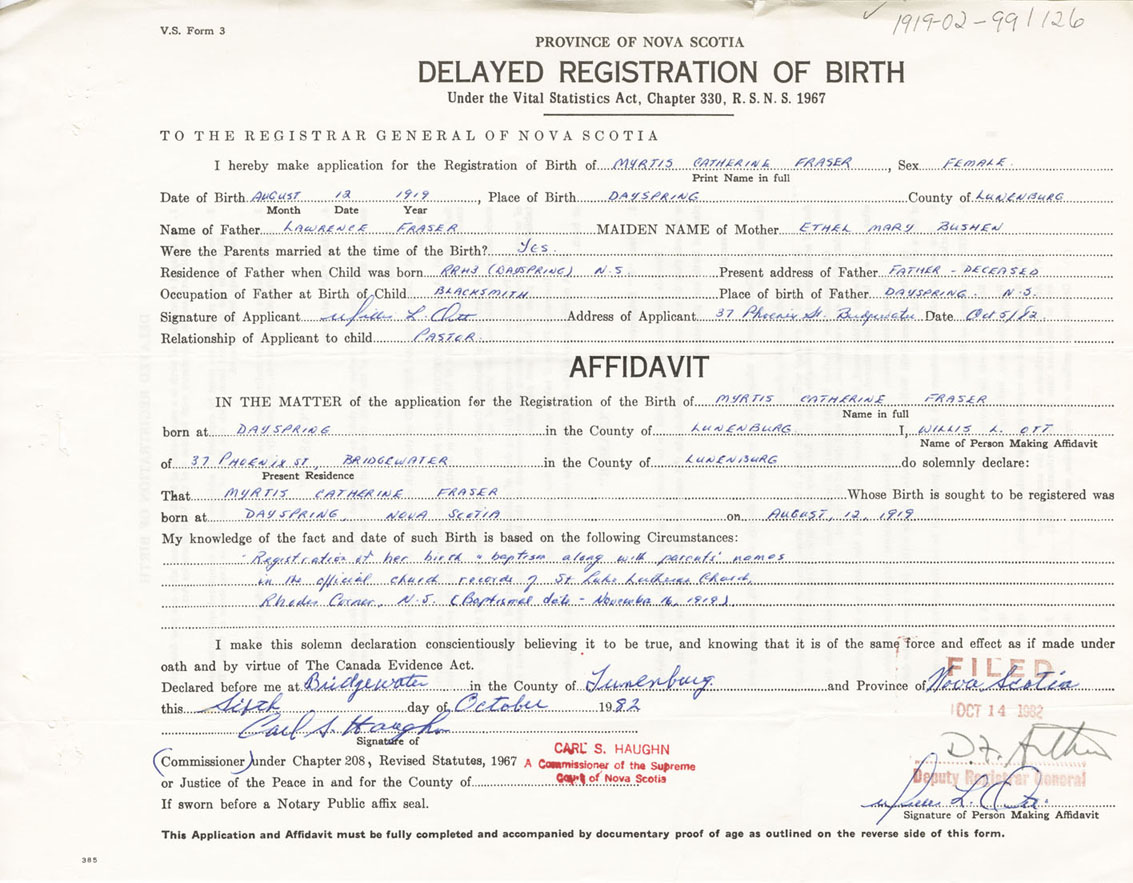 V.S. Form 3
1919-02-991126
PROVINCE OF NOVA SCOTIA
DELAYED REGISTRATION OF BIRTH
Under the Vital Statistics Act, Chapter 330, R.S.N.S. 1967
TO THE REGISTRAR GENERAL OF NOVA SCOTIA
I hereby make application for the Registration of Birth of MYRTIS CATHERINE FRASER, Sex FEMALE.
Print Name in full
Date of Birth AUGUST 12 1919, Place of Birth DAYSPRING County of LUNENBURG
Month Date Year
Name of Father LAWRENCE FRASER MAIDEN NAME of Mother ETHEL MARY BUSHEN
Were the Parents married at the time of the Birth? Yes.
Residence of Father when Child was born RR#3 (DAYSPRING) N.S. Present address of Father FATHER - DECEASED
Occupation of Father at Birth of Child BLACKSMITH Place of birth of Father DAYSPRING. N.S.
Signature of Applicant Willis L. Ott Address of Applicant 37 Phoenix St. Bridgewater Date Oct 5/82
Relationship of Applicant to child PASTOR.
AFFIDAVIT
IN THE MATTER of the application for the Registration of the Birth of MYRTIS CATHERINE FRASER
Name in full
born at DAYSPRING in the County of LUNENBURG I, WILLIS L. OTT
Name of Person Making Affidavit
of 37 PHOENIX ST, BRIDGEWATER in the County of LUNENBURG do solemnly declare:
Present Residence
That MYRTIS CATHERINE FRASER Whose Birth is sought to be registered was
born at DAYSPRING, NOVA SCOTIA on AUGUST, 12, 1919
My knowledge of the fact and date of such Birth is based on the following Circumstances:
- Registration of her birth & baptism along with parents' names
in the official church records of St Luke Lutheran Church,
Rhodes Corner, N.S. (Baptismal date - November 16, 1919)
I make this solemn declaration conscientiously believing it to be true, and knowing that it is of the same force and effect as if made under
oath and by virtue of The Canada Evidence Act.
FILED
Declared before me at Bridgewater in the County of Lunenburg and Province of Nova Scotia
this Fifth day of October 1982
OCT 14 1982
Carl S. Haughn
Signature of
CARL S. HAUGHN
(Commissioner) under Chapter 208, Revised Statutes, 1967 A Commissioner of the Supreme
Court of Nova Scotia
Deputy Registrar General
or Justice of the Peace in and for the County of
Willis L. Ott
If sworn before a Notary Public affix seal.
Signature of Person Making Affidavit
This Application and Affidavit must be fully completed and accompanied by documentary proof of age as outlined on the reverse side of this form.
385